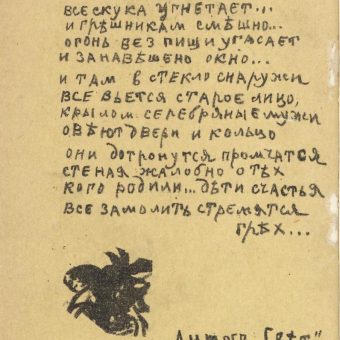 все скука угнетает...
и грѣшникам смѣшно...
огонь без пищи угасает
и занавѣшено окно...
и там в стекло снаружи
все бьется старое лицо,
крылом серебряные мужи
овѣют двери и кольцо
они дотронутся промчатся
стеная жалобно о тѣх
кого родили... дѣти счастья
все замолить стремятся
грѣх...